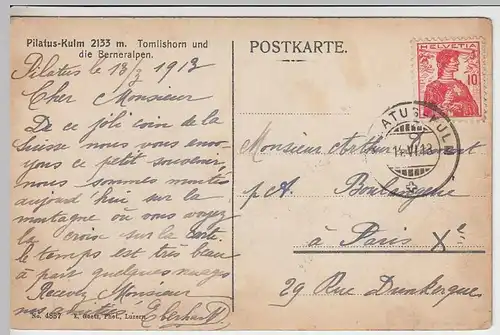 Pilatus-Kulm 2133 m. Tomlishorn und
die Berneralpen.
POSTKARTE.
HELVETIA
10
Pilatus le 13/ 1913
Cher Monsieur
De ce joli coin de la
Suisse nous vous envo-
yons ce petit souvenir
nous sommes montés
aujourd hui sur la
montagne où vous voyez
la croix sur la carte.
le temps est très beau
à part quelques nuages
Recevez Monsieur
nos
Monsieur Arthur
p A. Boulangerie
à Paris Xe
29 Rue Dunkerques
VI.13
No. 4557 Phot., Luzern